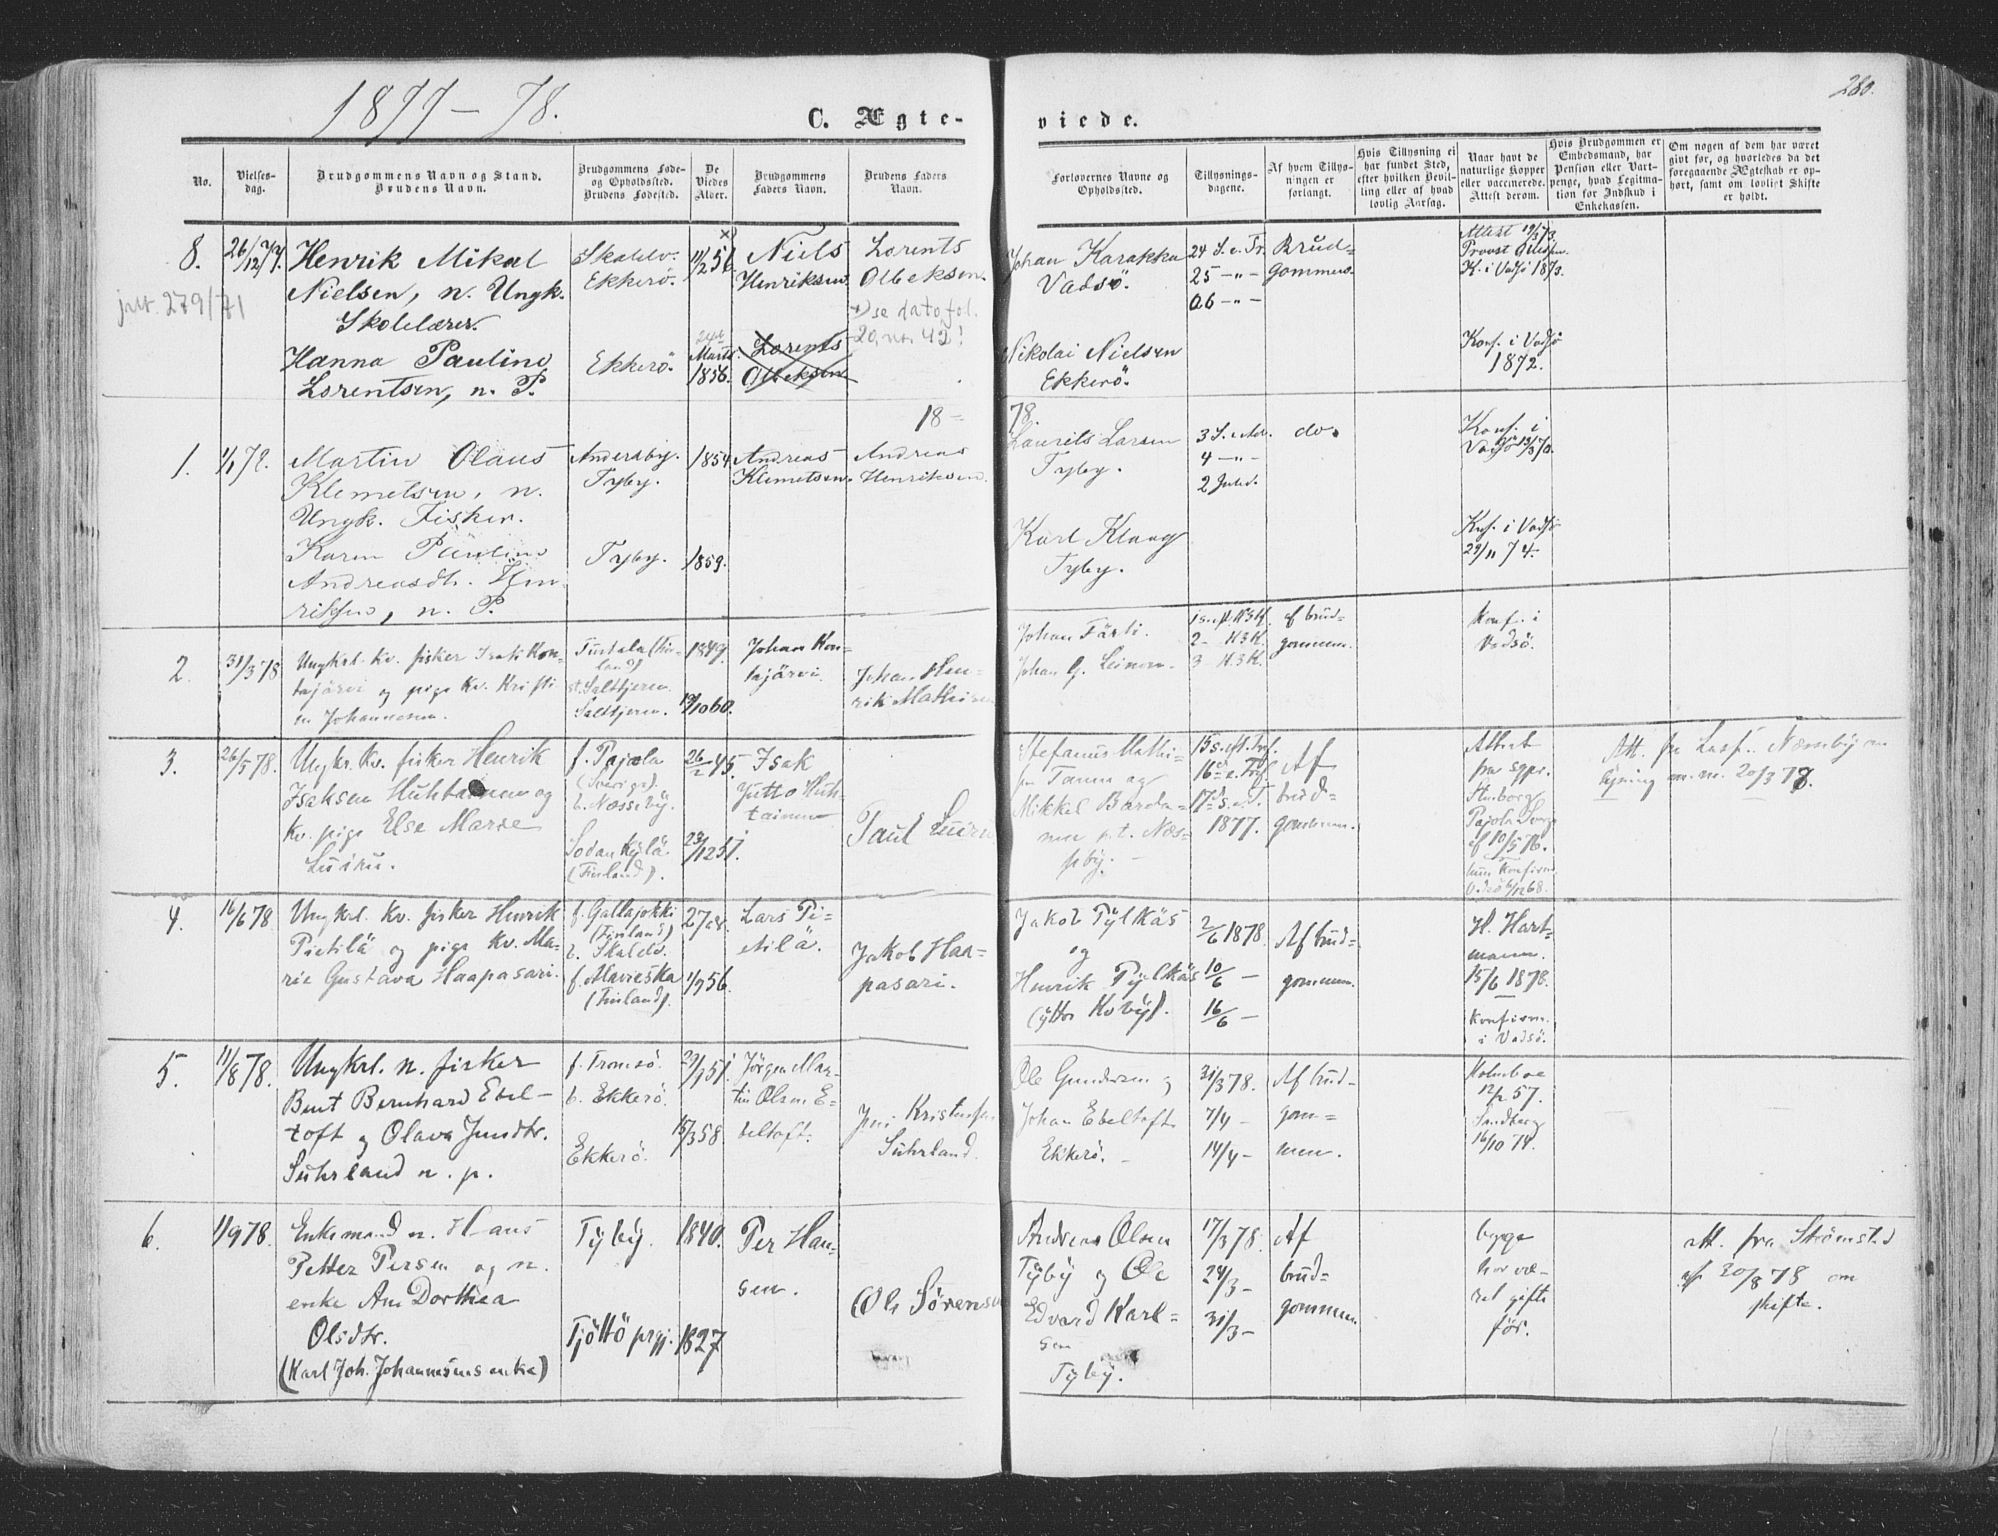 1877-78.
280.
C. Ægte-
viede.
No.
Vielses-
dag.
Brudgommens Navn og Stand.
Brudens Navn.
Brudgommens Føde-
og Opholdssted.
Brudens Fødested.
De
Viedes
Alder.
Brudgommens
Faders Navn.
Brudens Faders
Navn.
Forlovernes Navne og
Opholdssted.
Tillysnings-
dagene.
Af hvem Tillys-
ningen er
forlangt.
Hvis Tillysning ei
har fundet Sted,
efter hvilken Bevil-
ling eller af hvad
lovlig Aarsag.
Naar havt de
naturlige Kopper
eller vaccinerede.
Attest derom.
Hvis Brudgommen er
Embedsmand, har
Pension eller Vart-
penge, hvad Legitma-
tion for Indskud i
Enkekassen.
Om nogen af dem har været
givt før, og hvorledes da det
foregaaende Ægteskab er op-
hørt, samt om lovligt Skifte
er holdt.
8.
26/12 77.
279/71
Henrik Mikal
Nielsen, n. Ungk.
Skolelærer.
Hanna Pauline
Lorentsen, n. P.
Skoldv.
Ekkerö.
Ekkerö.
11/2 56
x)
24de
Marts
1856.
Niels
Henriksen
Lorents
Olbeksen
Lorents
Olbeksen.
x) se dato fol.
20, no. 42!
Johan Karakka
Vadsö.
Nikolai Nielsen
Ekkerö.
24 S. e. Tr.
25 -"-
26 -"-
Brud-
gommen.
Attest
Provst
K. i Vadsö 1873.
Konf. i Vadsö
1872.
18-
78.
1.
Martin Olaus
Klemetsen, n.
Ungk. Fisker.
Karen Pauline
Andreasdt. Hen-
riksen, n. P.
Andersby.
Tyby.
Tyby.
1854
1859.
Andreas
Klemetsen.
Andreas
Henriksen.
Laurits Larsen
Tyby.
Karl Klaag
Tyby.
3 S. e. Adv.
4 -"-
2 Juled.
do.
Konf. i
Vadsö
Knf. i Vadsö
29/11 74.
2.
31/3 78
Ungkrl. kv. fisker Isak Kon-
tajärvi og pige kv. Kristi
n Johannesen.
(Fin-
land)
Saltfjeren.
Saltfjeren.
1849.
19/10 60.
Johan Kon-
tajärvi
Johan Hen-
rik Mathisen
Johan Färli.
Johan G. Leinonen.
2- H3K.
3- H3K.
af brud-
gommen.
Konf. i
Vadsö.
3.
26/5 78.
Ungkr. kv. fisker Henrik
Isaksen Huhtainen og
kv. pige Else Marie
Luiru.
f. Pajala
(Sverige).
b. Næsseby.
Sodankylä
(Finland).
26/2 45.
23/12 51.
Isak
Jutto Huh-
tainen
Paul Luiru
Stefanus Mathi-
sen Tanen og
Mikkel Barda-
nen p.t. Næs-
seby. -
15 s. eft. tref.
16de e. Tref.
17de s. e. T.
1877.
Af
brud-
gommen.
Attest
fra sgpr.
Stenborg
Pajala Sverge
af 10/5 76.
Att. fra Lensf. Næsseby om
lysning m. m. 20/3 78.
4.
16/6 78
Ungkrl. kv. fisker Henrik
Pietilä og pige kv. Ma-
rie Gustava Haapasari.
f. Gallajokki
(Finland)
b. Skaldv.
f. Alavieska
(Finland).
27 år.
1/9 56.
Lars Pi-
etilä.
Jakob Haa-
pasari.
Jakob Pylkäs
og
Henrik Pylkäs
(ytter Kvby).
2/6 1878.
10/6 -
16/6 -
Af brud-
gommen.
H. Hart-
mann.
15/6 1878.
Konfirm.
i Vadsö.
5.
11/8 78.
Ungkrl. n. fisker
Bent Bernhard Ebel-
toft og Olava Jensdtr.
Suhrland n. p.
f. Tromsö.
b. Ekkerö.
Ekkerö.
29/1 51.
15/3 58.
Jörgen Mar-
tin Olsen E-
beltoft.
Jens Kristensen
Suhrland.
Ole Gundersen og
Johan Ebeltoft
Ekkerö. -
31/3 78.
7/4 -
14/4 -
Af brud-
gom-
men.
Holmboe
12/2 57.
Sandberg
16/10 74.
6.
1/9 78.
Enkemand n. Hans
Petter Persen og n.
enke Ane Dorthea
Olsdtr.
(Karl Joh. Johannesens enke)
Tyby.
Tjöttö prgj.
1840.
1827
Per Han-
sen.
Ole Sörensen
Andreas Olsen
Tyby og Ole
Edvard Karl-
sen
Tyby.
17/3 78.
24/3 -
31/3 -
Af
brud-
gommen
begge
har væ-
ret gifte
för.
att. fra Strømsted
af 20/8 78 om
skifte.